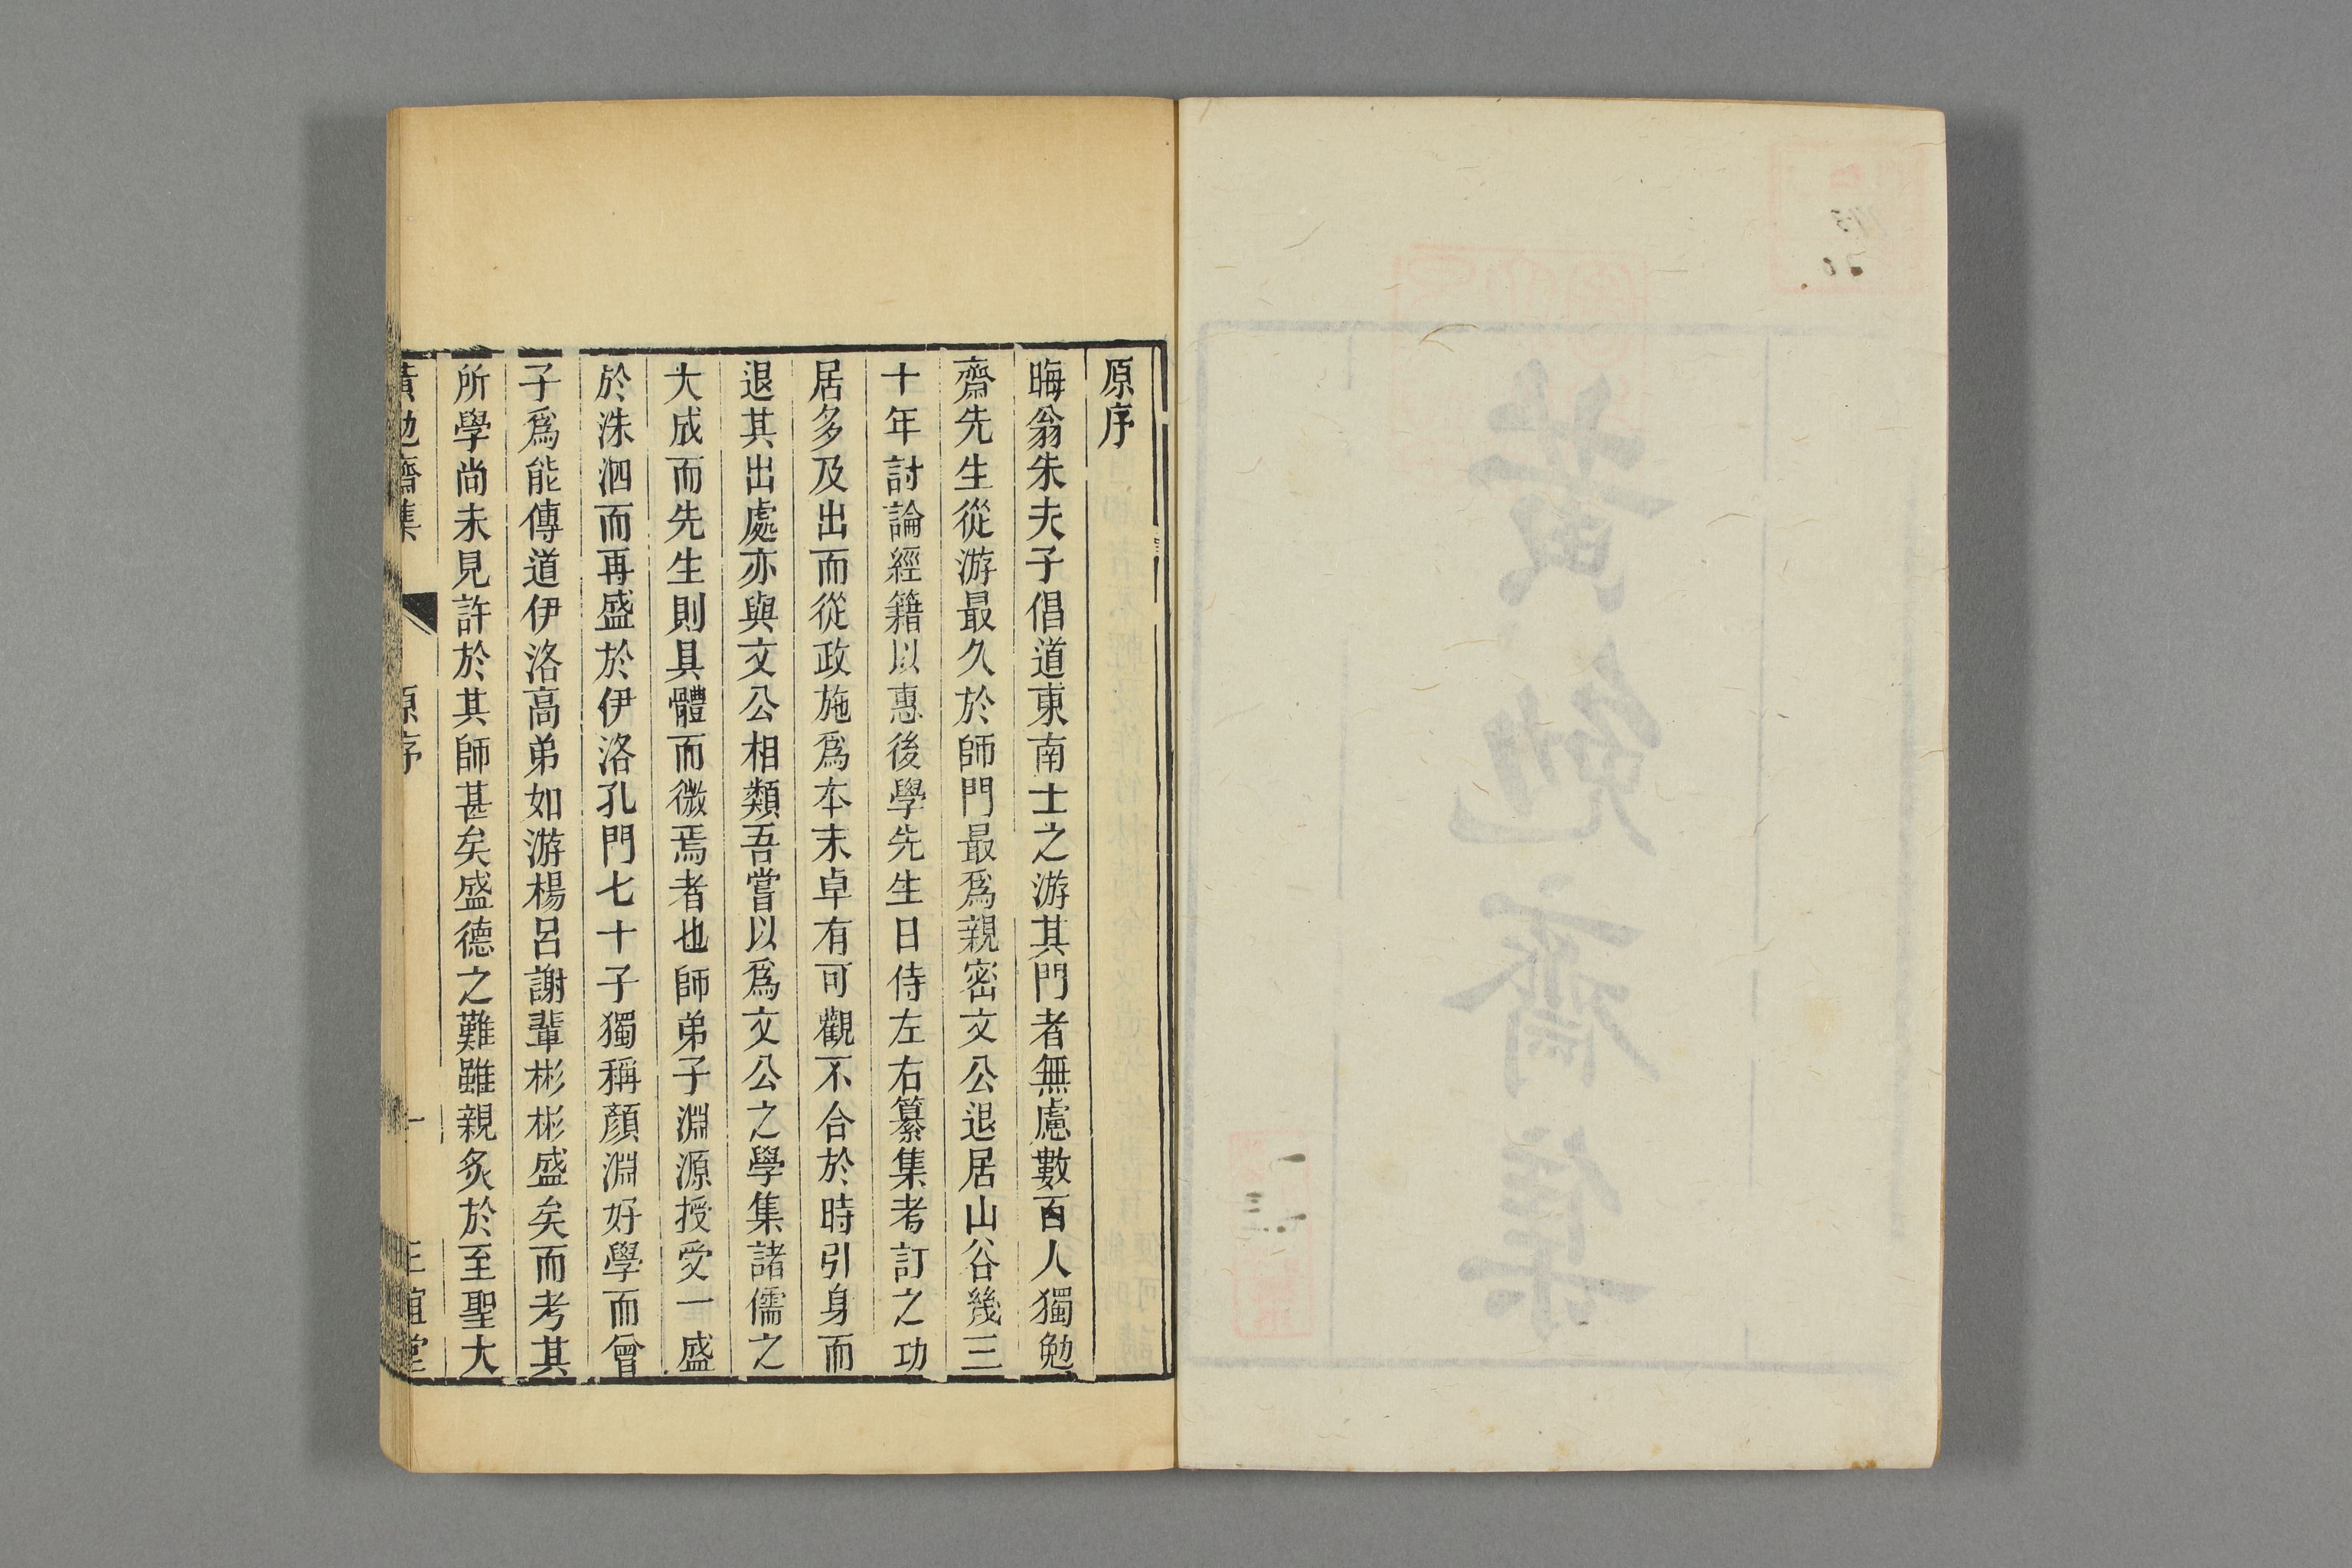 黃勉齋集
原序
晦翁朱夫子倡道東南士之游其門者無慮數百人獨勉
齋先生從游最久於師門最爲親密文公退居山谷幾三
十年討論經籍以惠後學先生日侍左右纂集考訂之功
居多及出而從政施爲本末卓有可觀不合於時引身而
退其出處亦與文公相類吾嘗以爲文公之學集諸儒之
大成而先生則具體而微焉者也師弟子淵源授受一盛
於洙泗而再盛於伊洛孔門七十子獨稱顏淵好學而曾
子爲能傳道伊洛高弟如游楊呂謝輩彬彬盛矣而考其
所學尚未見許於其師甚矣盛德之難雖親炙於至聖大
黃勉齋集 原序 一 正誼堂